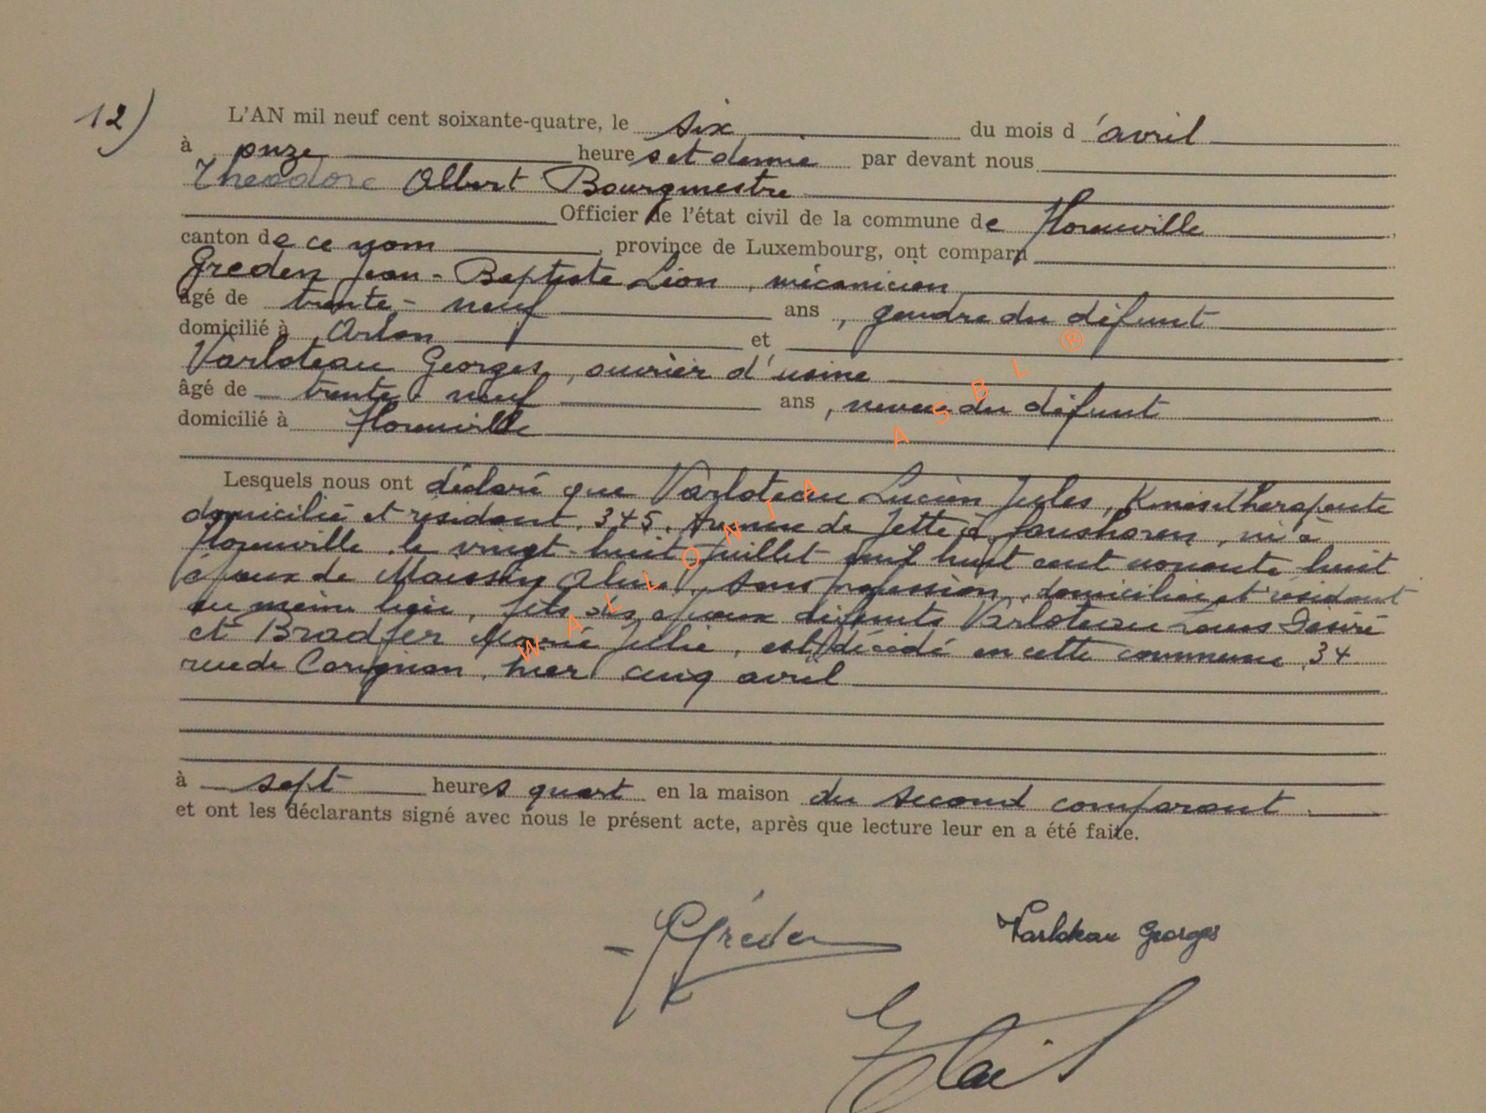 12)
L'AN mil neuf cent soixante-quatre, le six du mois d'avril
à onze heures et demie par devant nous
Théodore Albert Bourgmestre
Officier de l'état civil de la commune de Florenville
canton de ce nom, province de Luxembourg, ont comparu
Greden Jean-Baptiste Léon, mécanicien
âgé de trente-neuf ans, gendre du défunt
domicilié à Arlon et
Varloteau Georges, ouvrier d'usine
âgé de trente-neuf ans, neveu du défunt
domicilié à Florenville
Lesquels nous ont déclaré que Varloteau Lucien Jules, Kinésithérapeute
domicilié et résidant, 345, Avenue de Jette à Ganshoren, né à
Florenville, le vingt-huit juillet mil huit cent nonante huit
époux de Maissin, sans profession, domiciliée et résidant
au même lieu, fils des époux défunts Varloteau Louis Désiré
et Bradfer Marie, est décédé en cette commune, 34
rue de Carignan, hier cinq avril
à sept heures quart en la maison du second comparant.
et ont les déclarants signé avec nous le présent acte, après que lecture leur en a été faite.
Gréden
Varloteau Georges
WALLONIA ASBL ®